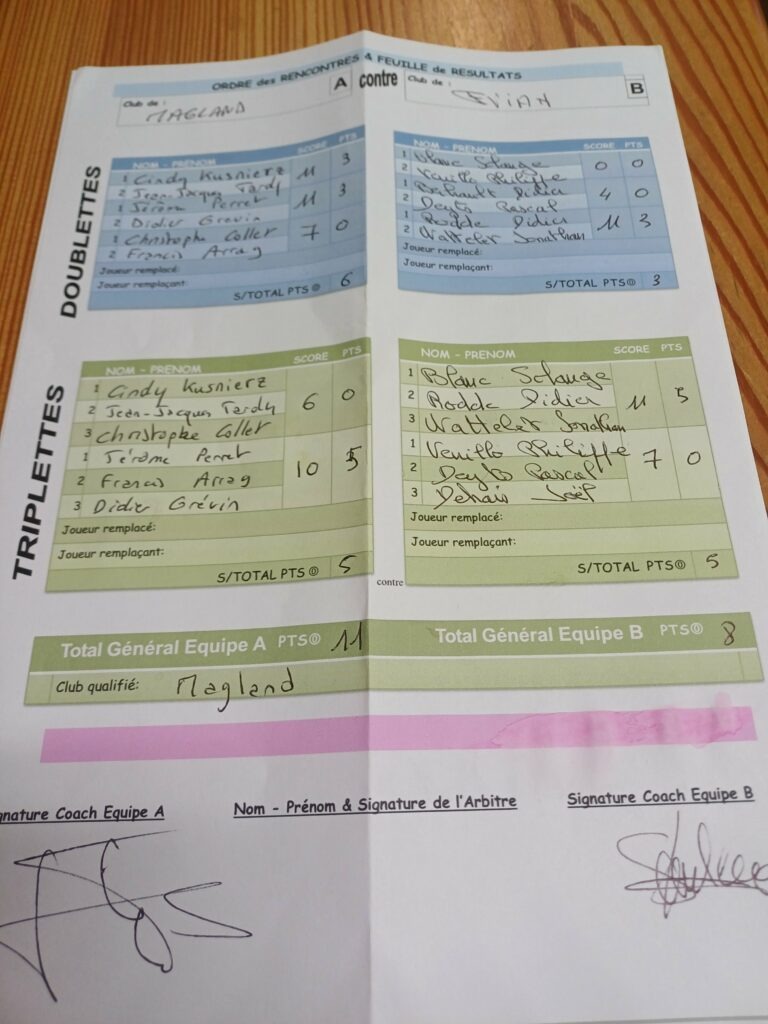 ORDRE des RENCONTRES & FEUILLE de RESULTATS
Club de : MAGLAND A contre Club de : EVIAN B
DOUBLETTES
NOM - PRENOM SCORE PTS
1 Cindy Kusnierz 11 3
2 Jean-Jacques Tardy
1 Jérôme Perret 11 3
2 Didier Grévin
1 Christophe Collet 7 0
2 Francis Arrag
Joueur remplacé:
Joueur remplaçant:
S/TOTAL PTS 6
NOM - PRENOM SCORE PTS
1 Blanc Solange 0 0
2 Venillo Philippe
1 Didier 4 0
2 Pascal
1 Rodde Didier 11 3
2 Wattelet Jonathan
Joueur remplacé:
Joueur remplaçant:
S/TOTAL PTS 3
TRIPLETTES
NOM - PRENOM SCORE PTS
1 Cindy Kusnierz
2 Jean-Jacques Tardy 6 0
3 Christophe Collet
1 Jérôme Perret
2 Francis Arrag 10 5
3 Didier Grévin
Joueur remplacé:
Joueur remplaçant:
S/TOTAL PTS 5
contre
NOM - PRENOM SCORE PTS
1 Blanc Solange
2 Rodde Didier 11 5
3 Wattelet Jonathan
1 Venillo Philippe
2 Pascal 7 0
3 Joël
Joueur remplacé:
Joueur remplaçant:
S/TOTAL PTS 5
Total Général Equipe A PTS 11 Total Général Equipe B PTS 8
Club qualifié: Magland
gnature Coach Equipe A Nom - Prénom & Signature de l'Arbitre Signature Coach Equipe B